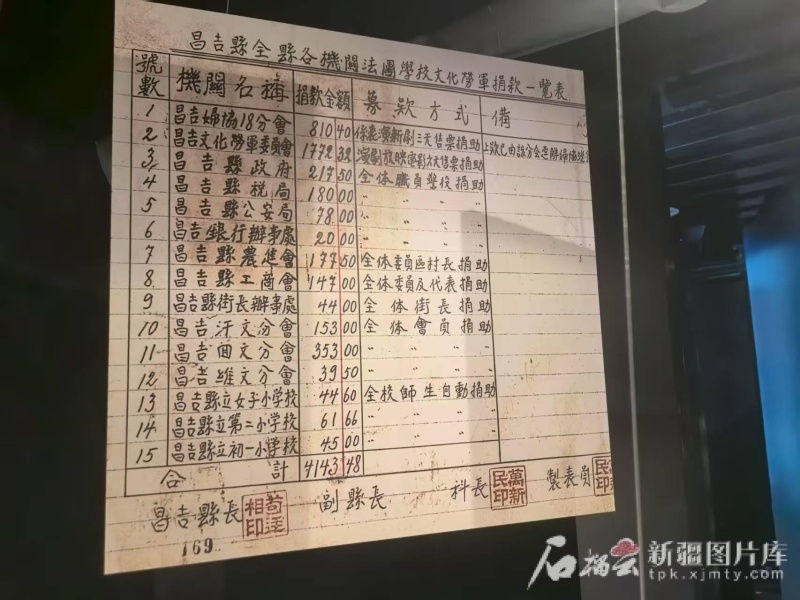 昌吉縣全縣各機關法團學校文化勞軍捐款一覽表
號數 機關名稱 捐款金額 募款方式 備
1 昌吉婦協18分會 810 40 係表演新劇三天售票捐助
2 昌吉文化勞軍委員會 1772 32 演劇放映電影六天售票捐助
3 昌吉縣政府 217 50 全体職員警役捐助
4 昌吉縣税局 180 00 〃 〃 〃
5 昌吉縣公安局 78 00 〃 〃 〃
6 昌吉銀行辦事處 20 00 〃 〃 〃
7 昌吉縣農進會 177 50 全体委員區村長捐助
8 昌吉縣工商會 147 00 全体委員及代表捐助
9 昌吉縣街長辦事處 44 00 全体街長捐助
10 昌吉汗文分會 153 00 全体會員捐助
11 昌吉回文分會 353 00 〃 〃 〃
12 昌吉維文分會 39 50 〃 〃 〃
13 昌吉縣立女子小學校 44 60 全校師生自動捐助
14 昌吉縣立第二小學校 61 66 〃 〃 〃
15 昌吉縣立初一小學校 45 00 〃 〃 〃
合計 4143 48
昌吉縣長 副縣長 科長 萬新民印 製表員
169
石榴云 新疆图片库
tpk.xjmty.com